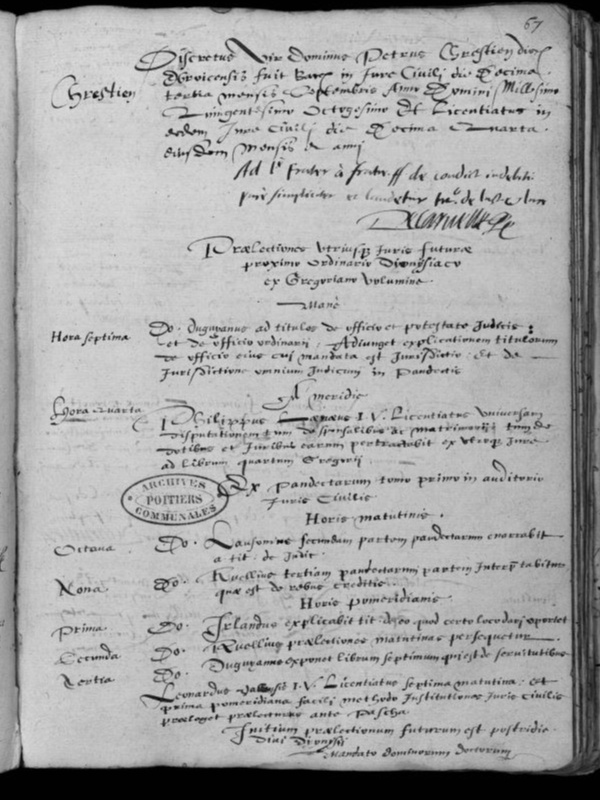 67
Discretus Vir Dominus Petrus Chrestien dioc.
Chrestien
fuit Bacc. in Jure Civili die decima
tertia mensis Septembris Anno Domini Millesimo
Quingentesimo Octogesimo Et Licentiatus in
eodem Jure Civili die Decima Quarta
eiusdem mensis & anni
Ad frater à fratre ff de condict indebiti
pure simpliciter et laudetur
Prælectiones Vtriusq Juris futuræ
proximo ordinario Dionysiaco
ex Gregoriano Volumine
Manè
Hora septima
Do. Duguyanus ad titulos de officio et potestate Judicis
et de officio ordinarii, Adiunget explicationem titulorum
de officio eius cui mandata est Jurisdictio, Et de
Jurisdictione omnium Judicum in Pandectis
A meridie
Hora Quarta
Philippus I. V. Licentiatus Vniversam
disputationem tum de sponsalibus ac matrimoniis tum de
dotibus et Juribus earum pertractabit ex Vtroq Jure
ad librum quartum Gregorii
ARCHIVES
POITIERS
COMMUNALES
Ex Pandectarum tomo primo in auditorio
Juris Civilis
Horis matutinis.
Octava
Do. Lausonius secundam partem pandectarum enarrabit
a tit. de Judic.
Nona
Do. Ruellius tertiam pandectarum partem Interpretabitur
quæ est de rebus creditis
Horis pomeridianis
Prima
Do. Irlandus explicabit tit. de eo quod certo loco dari oportet
Secunda
Do. Ruellius prælectiones matutinas persequetur
Tertia
Do. Duguyanus exponet librum septimum qui est de servitutibus
Leonardus I. V. Licentiatus septima matutina, Et
prima pomeridiana facili methodo Institutiones Juris Civilis
prælegit ante Pascha
Initium prælectionum futurum est postridie
Divi Dionysii
Mandato dominorum doctorum